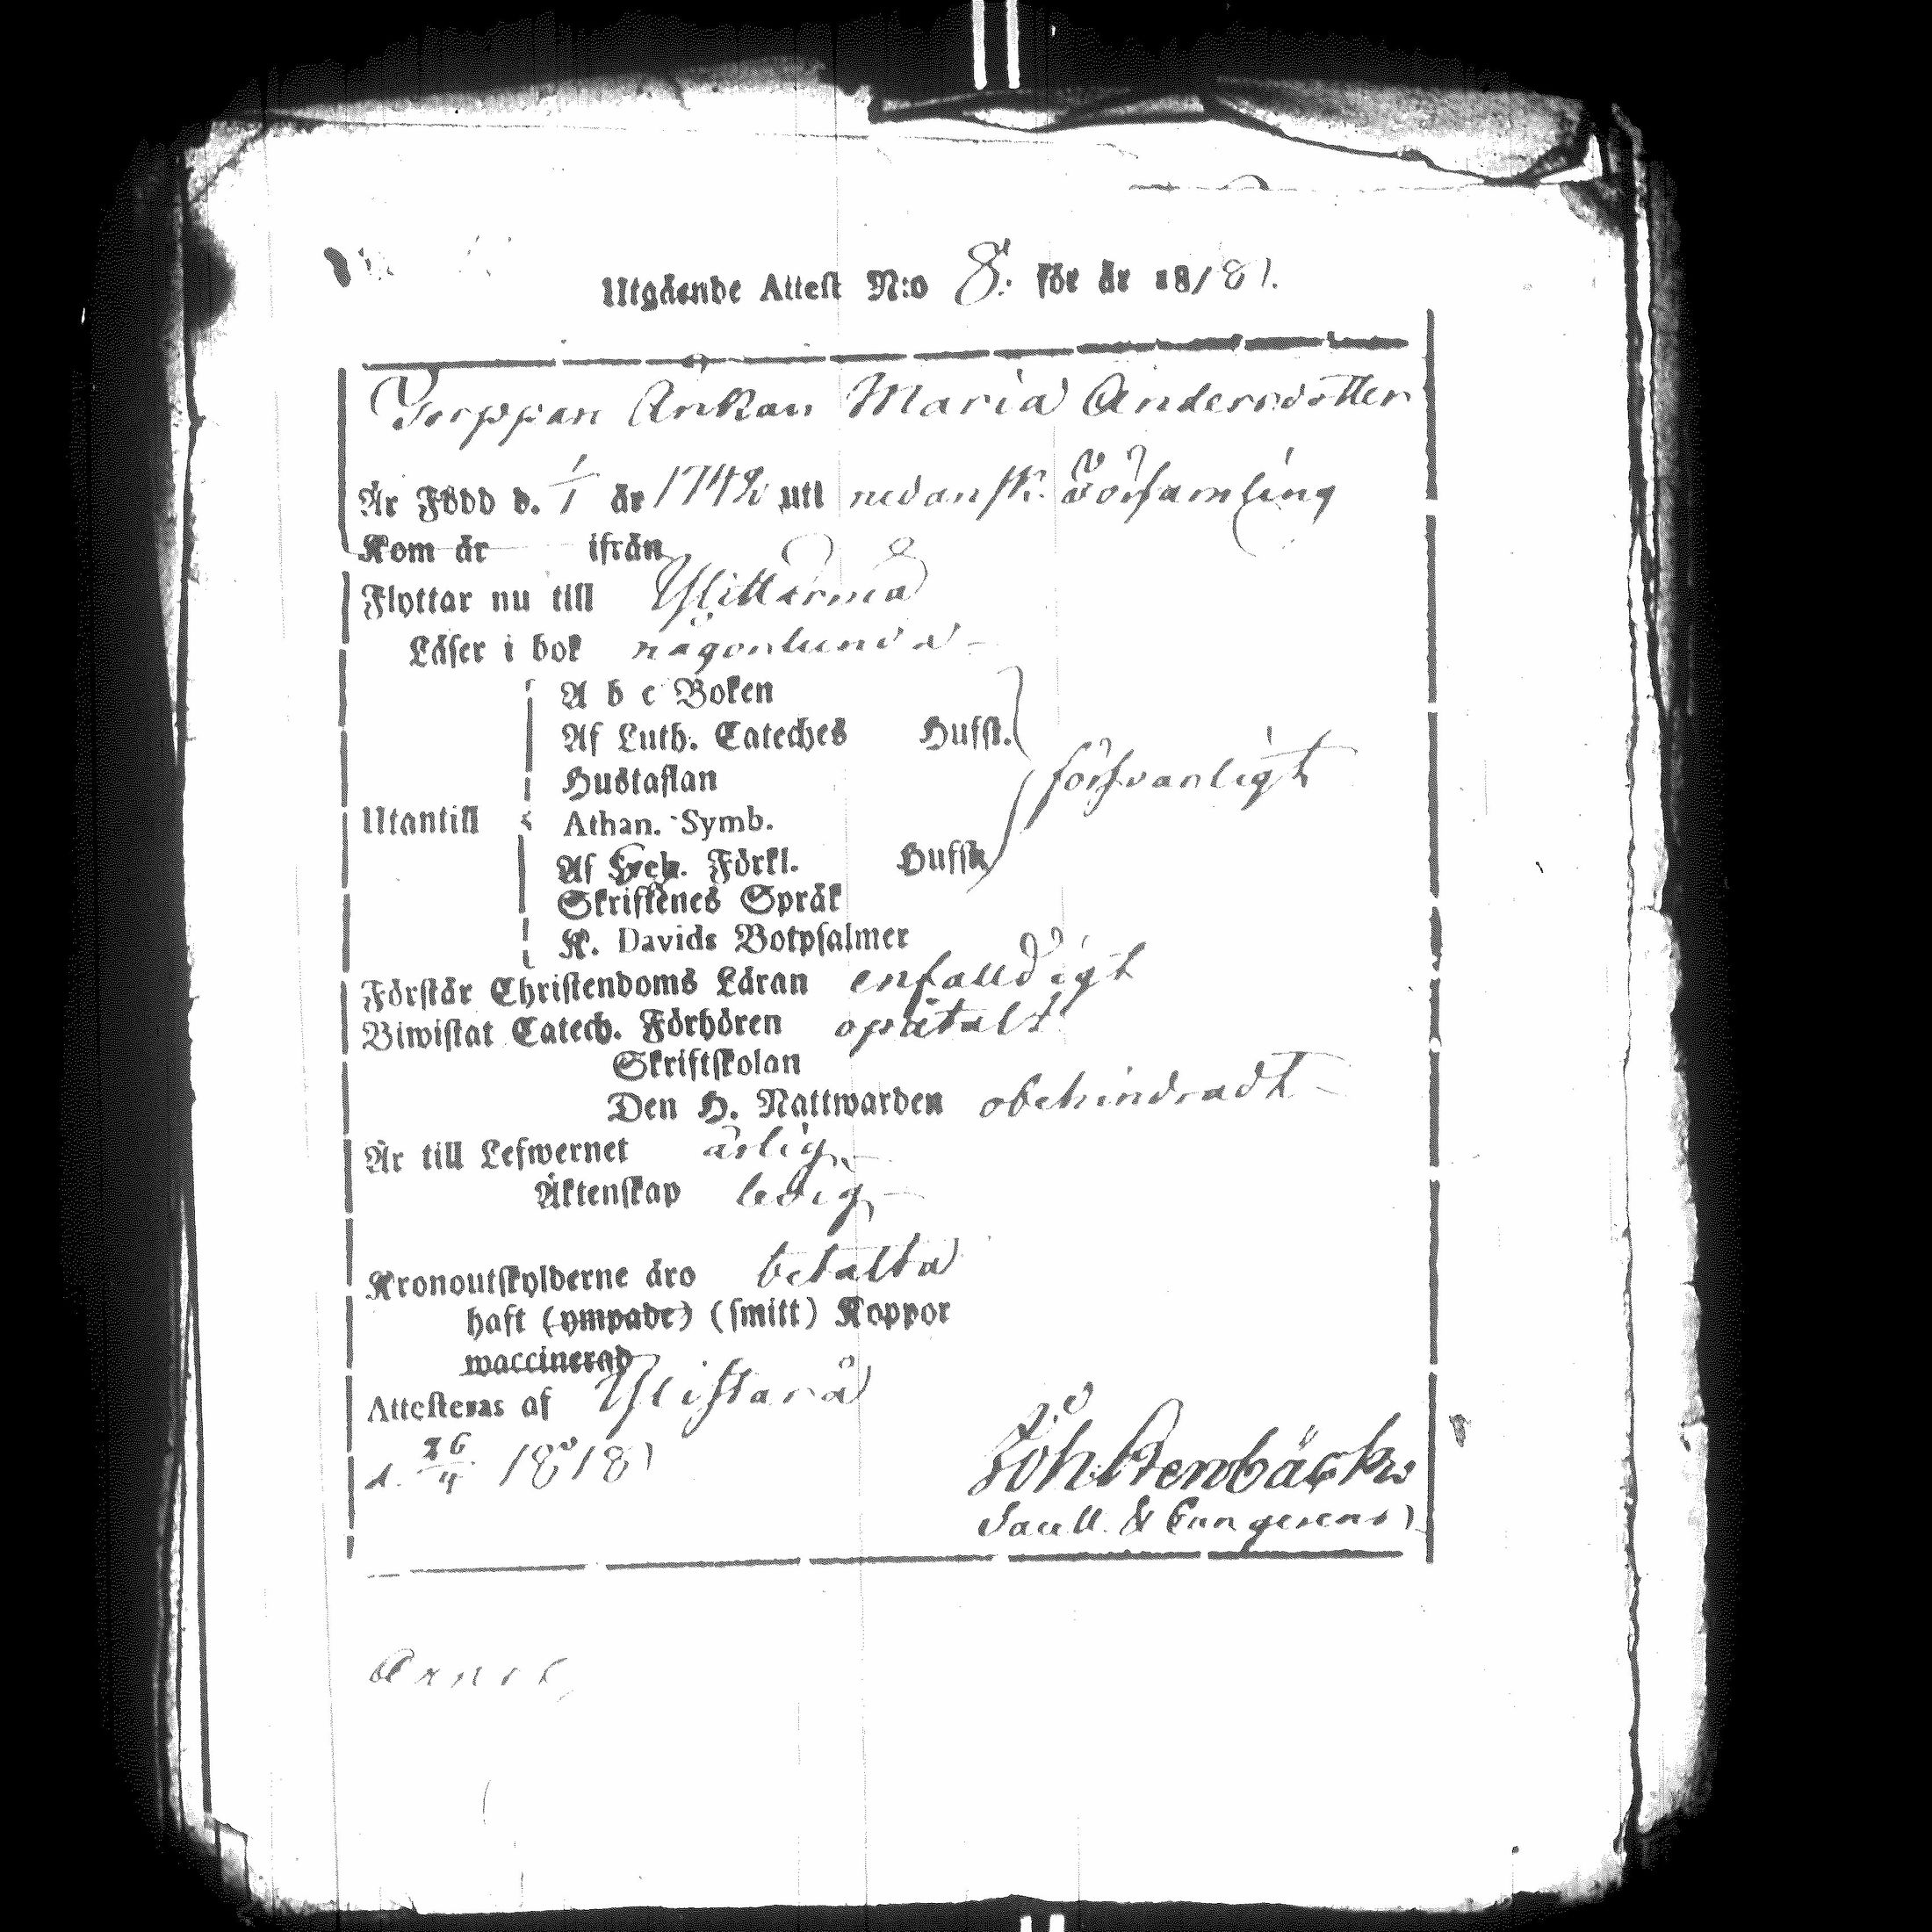 Utgående Attest N:o 8. för år 1818.
Torppan Änkan Maria Andersdotter
Är Född d. 1/1 år 1742 uti nedansk. Församling
Kom år ifrån
Flyttar nu till Ylitårneå
Läser i bok någorlunda
A b c Boken
Af Luth. Cateches Hufst.
Hustaflan försvarligt
Utantill Athan. Symb.
Af Förkl. Hufst.
Skriftenes Språk
K. Davids Botpsalmer
Förstår Christendoms Läran enfalldigt
Biwistat Catech. Förhören opåtalt
Skriftskolan
Den H. Nattwarden obehindradt
Är till Lefwernet ärlig
Äktenskap ledig
Kronoutskylderne äro betalta
haft (ympade) (smitt) Koppor
waccinerad
Attesteras af Ylistarå
d. 26/4 1818
Joh Stenbäck
Sacell.